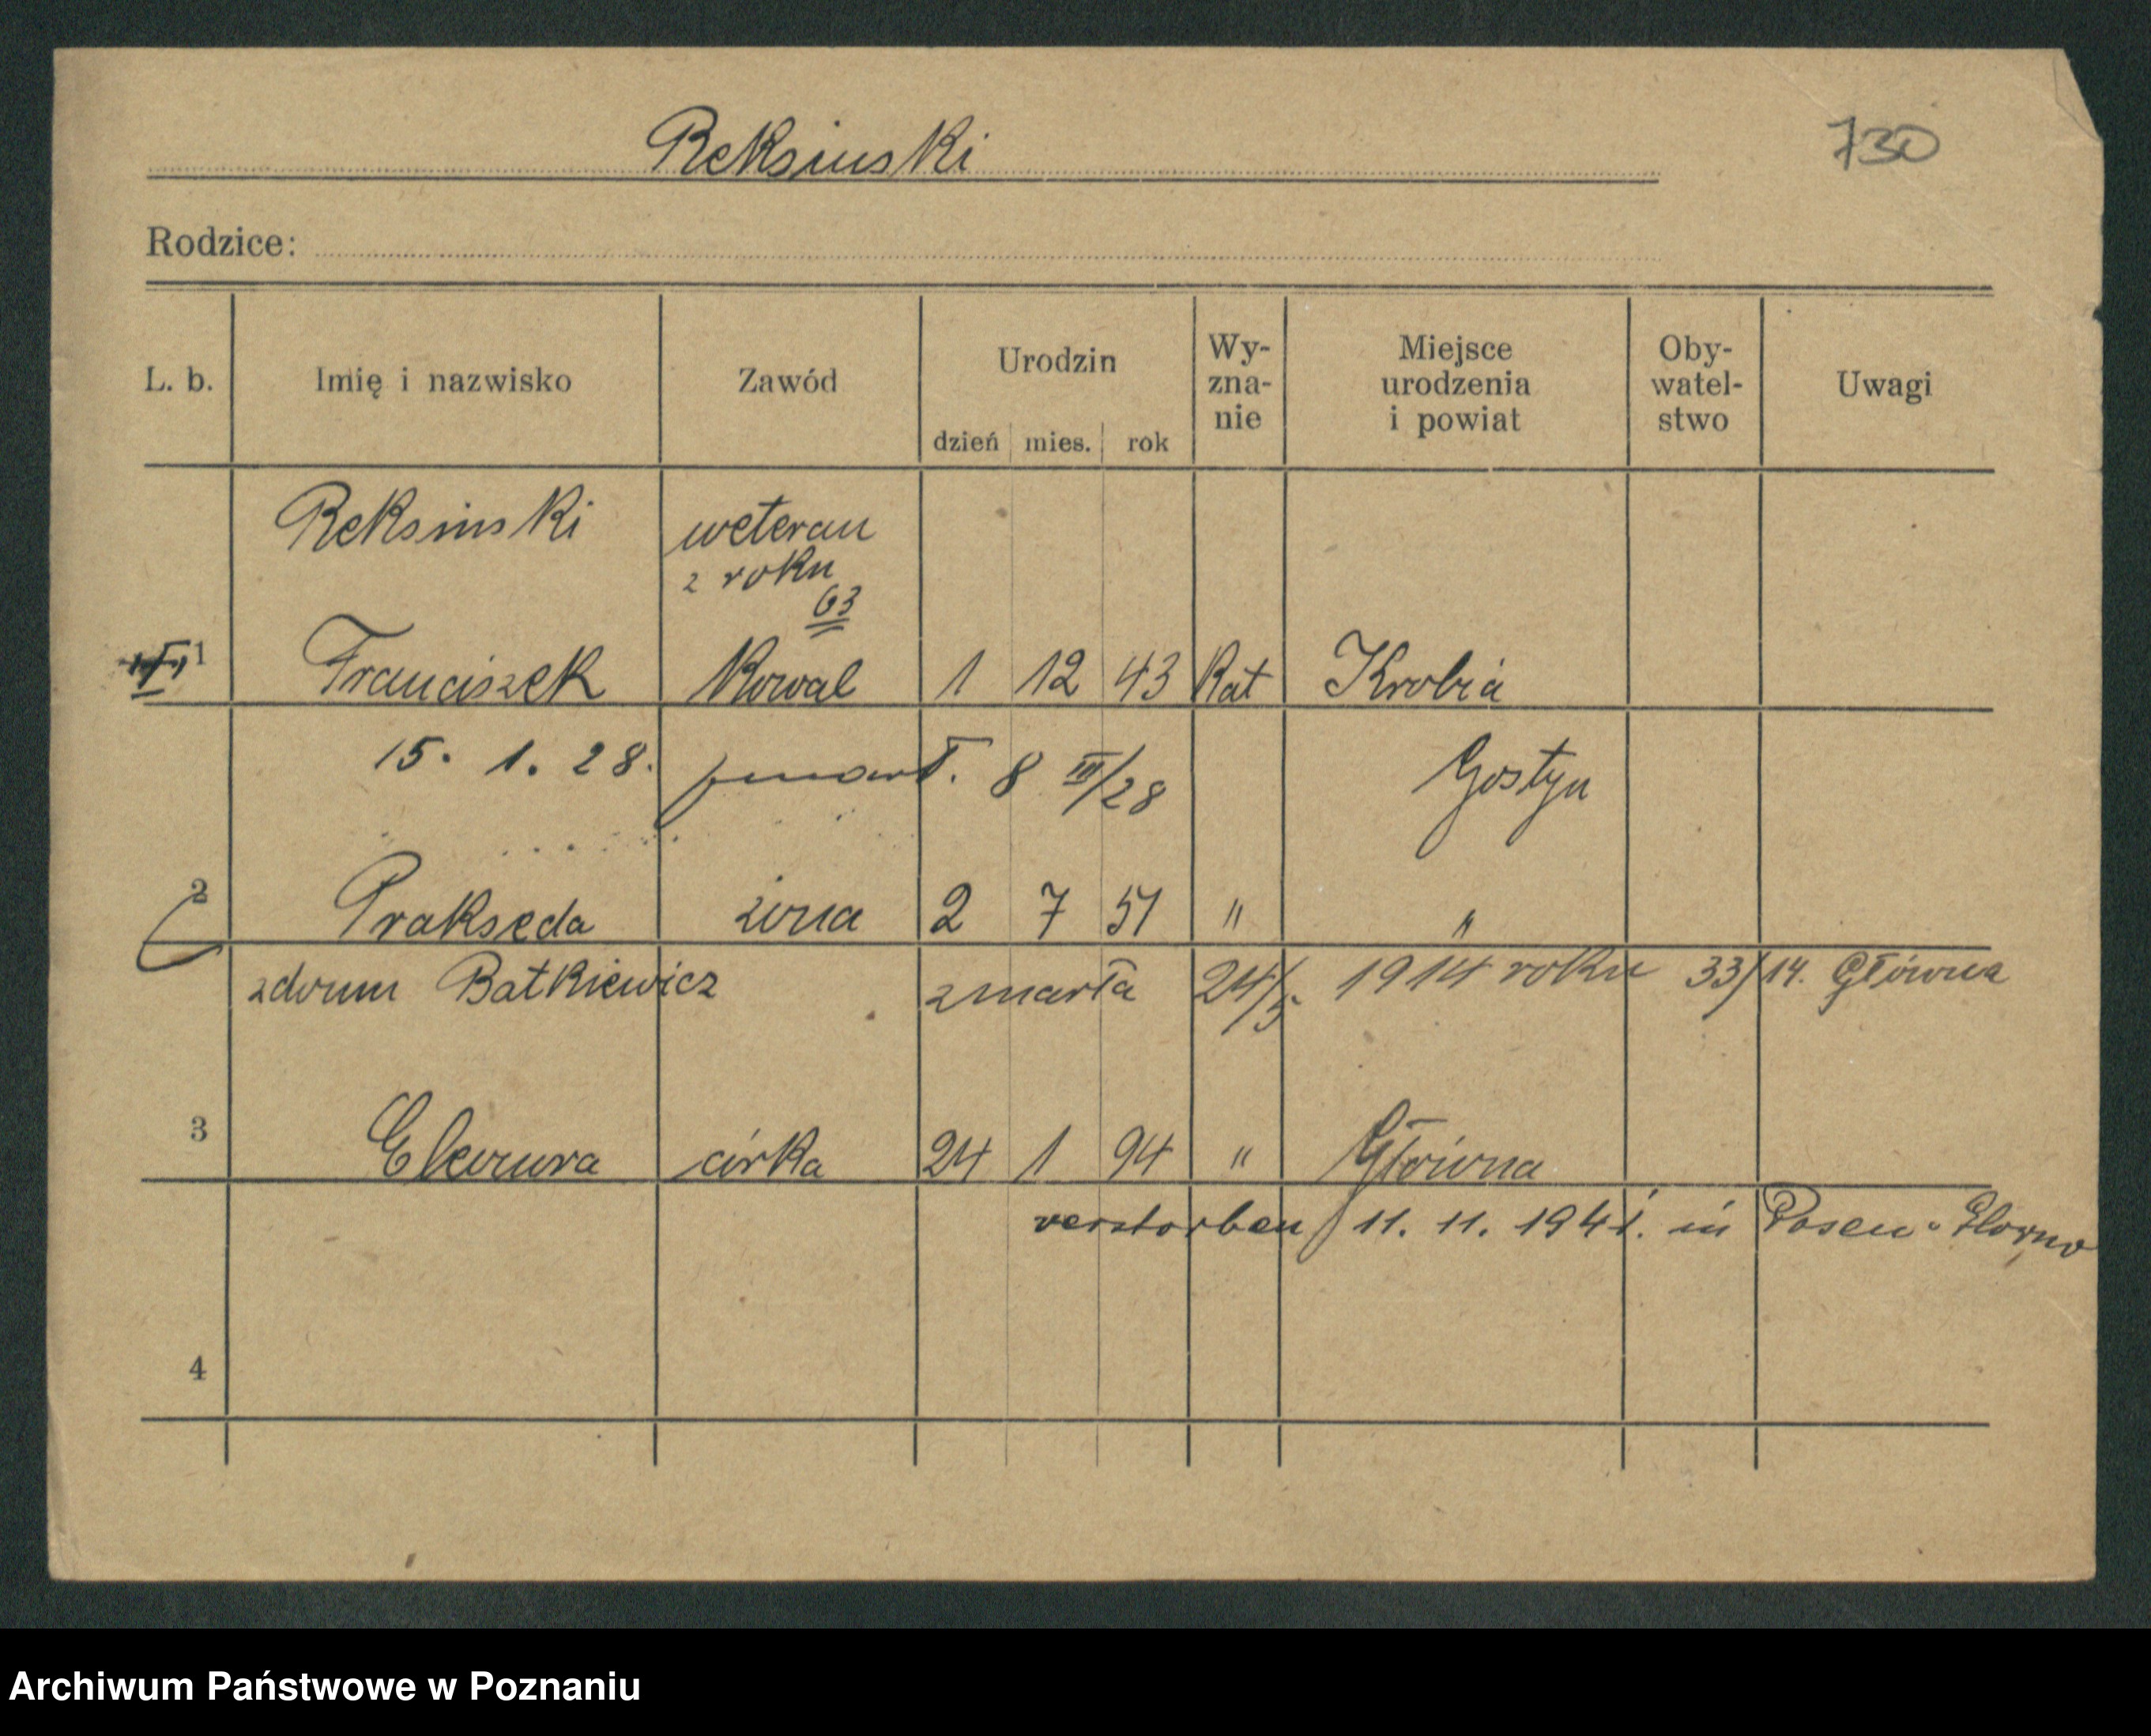 Reksinski
730
Rodzice:
L. b. Imię i nazwisko Zawód Urodzin dzień mies. rok Wy-zna-nie Miejsce urodzenia i powiat Oby-watel-stwo Uwagi
Reksinski weteran
z roku
63
1 Franciszek Kowal 1 12 43 Kat Krobia
15. 1. 28. zmarł. 8 III/28 Gostyn
2 Prakseda żona 2 7 51 " "
zdomu Batkiewicz zmarła 24/5. 1914 roku 33/14. Główna
3 Eleonora córka 24 1 94 " Główna
verstorben 11. 11. 1941. in Posen-Glowno
4
Archiwum Państwowe w Poznaniu